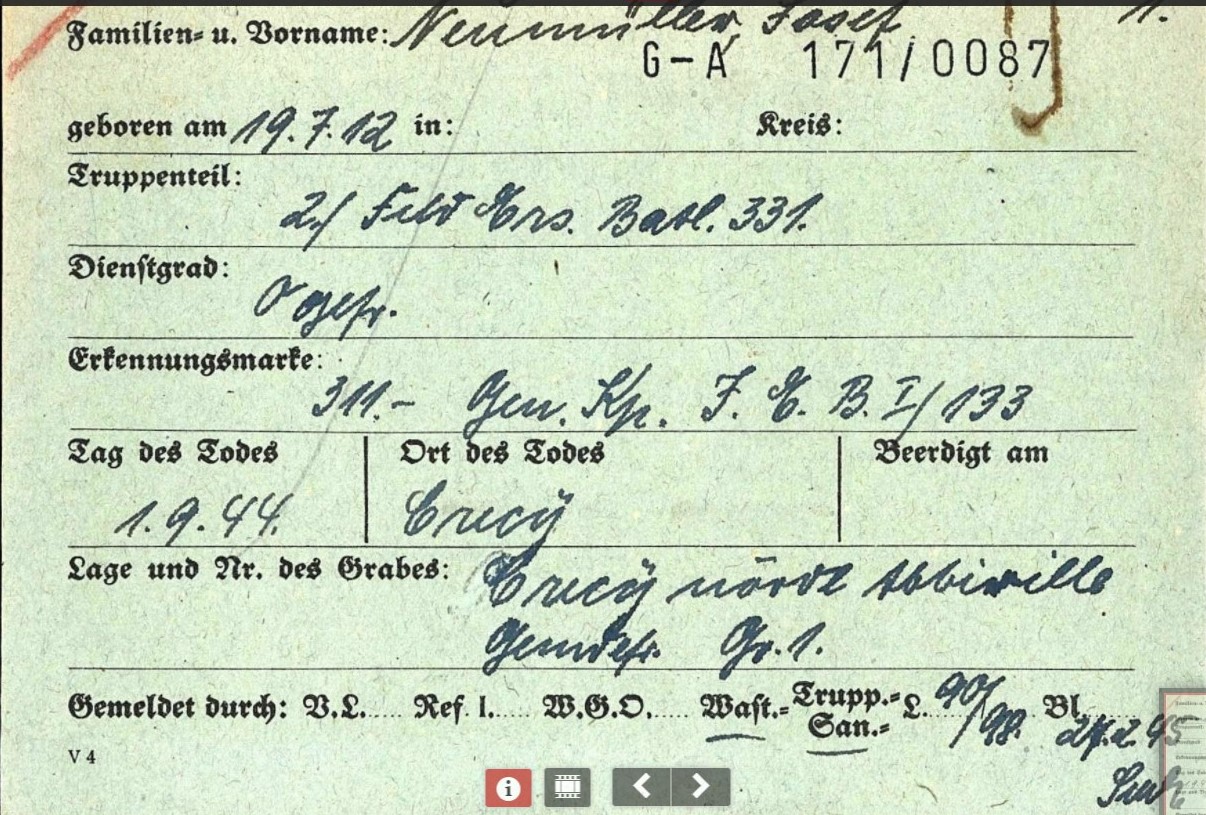 Familien= u. Vorname: Neumüller, Josef 1.
G-A 171/0087
geboren am 19.7.12 in: Kreis:
Truppenteil:
2./ Feld Ers. Batl. 331.
Dienstgrad:
Ogefr.
Erkennungsmarke:
311.- Gen. Kp. I. E. B. I/133
Tag des Todes Ort des Todes Beerdigt am
1.9.44. Crecÿ
Lage und Nr. des Grabes: Crecÿ nördl Abbiville
Gemdefr. Gr. 1.
Gemeldet durch: V.L..... Ref. I..... W.G.O..... Wast.= Trupp.= San.= L. 90/98. Bl. 27.2.45
V 4